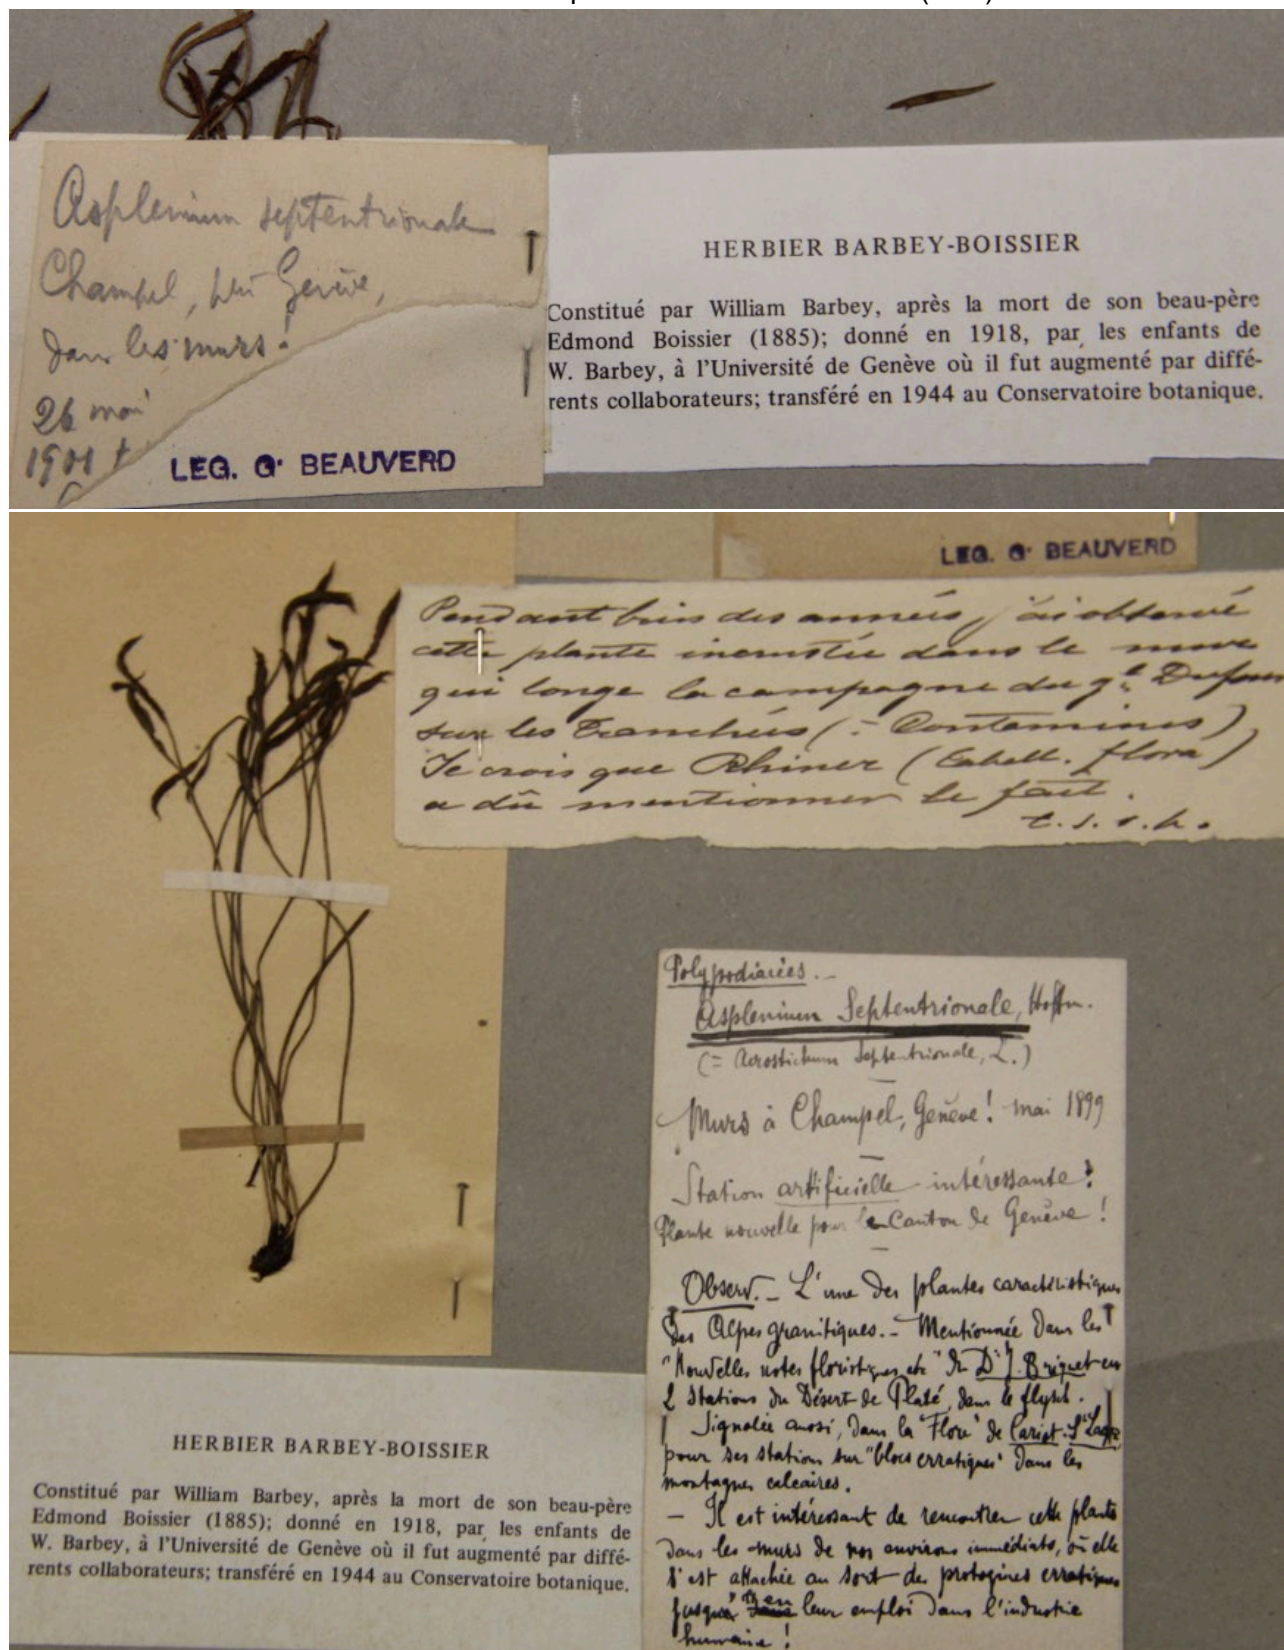 Asplenium septentrionale
Champel, près Genève,
dans les murs!
26 mai
1901
LEG. G. BEAUVERD
HERBIER BARBEY-BOISSIER
Constitué par William Barbey, après la mort de son beau-père
Edmond Boissier (1885); donné en 1918, par les enfants de
W. Barbey, à l'Université de Genève où il fut augmenté par diffé-
rents collaborateurs; transféré en 1944 au Conservatoire botanique.
LEG. G. BEAUVERD
Pendant bien des années, j'ai observé
cette plante incrustée dans le mur
qui longe la campagne du gl. Dufour
sur les Tranchées (= Contamines)
Je crois que Rhiner (Tabell. flora)
a dû mentionner le fait.
Polypodiacées.—
Asplenium Septentrionale, Hoffm.
(= Acrostichum Septentrionale, L.)
Murs à Champel, Genève! mai 1899
Station artificielle intéressante!
Plante nouvelle pour le Canton de Genève!
Observ. — L'une des plantes caractéristiques
des Alpes granitiques. — Mentionnée dans les
"Nouvelles notes floristiques etc" du Dr J. Briquet en
2 stations du Désert de Platé, dans le flysch.
Signalée aussi, dans la "Flore" de Cariot - St Lager
pour ses stations sur "blocs erratiques" dans les
montagnes calcaires.
— Il est intéressant de rencontrer cette plante
dans les murs de nos environs immédiats, où elle
s'est attachée au sort des protogines erratiques
jusqu'en leur emploi dans l'industrie
humaine!
HERBIER BARBEY-BOISSIER
Constitué par William Barbey, après la mort de son beau-père
Edmond Boissier (1885); donné en 1918, par les enfants de
W. Barbey, à l'Université de Genève où il fut augmenté par diffé-
rents collaborateurs; transféré en 1944 au Conservatoire botanique.